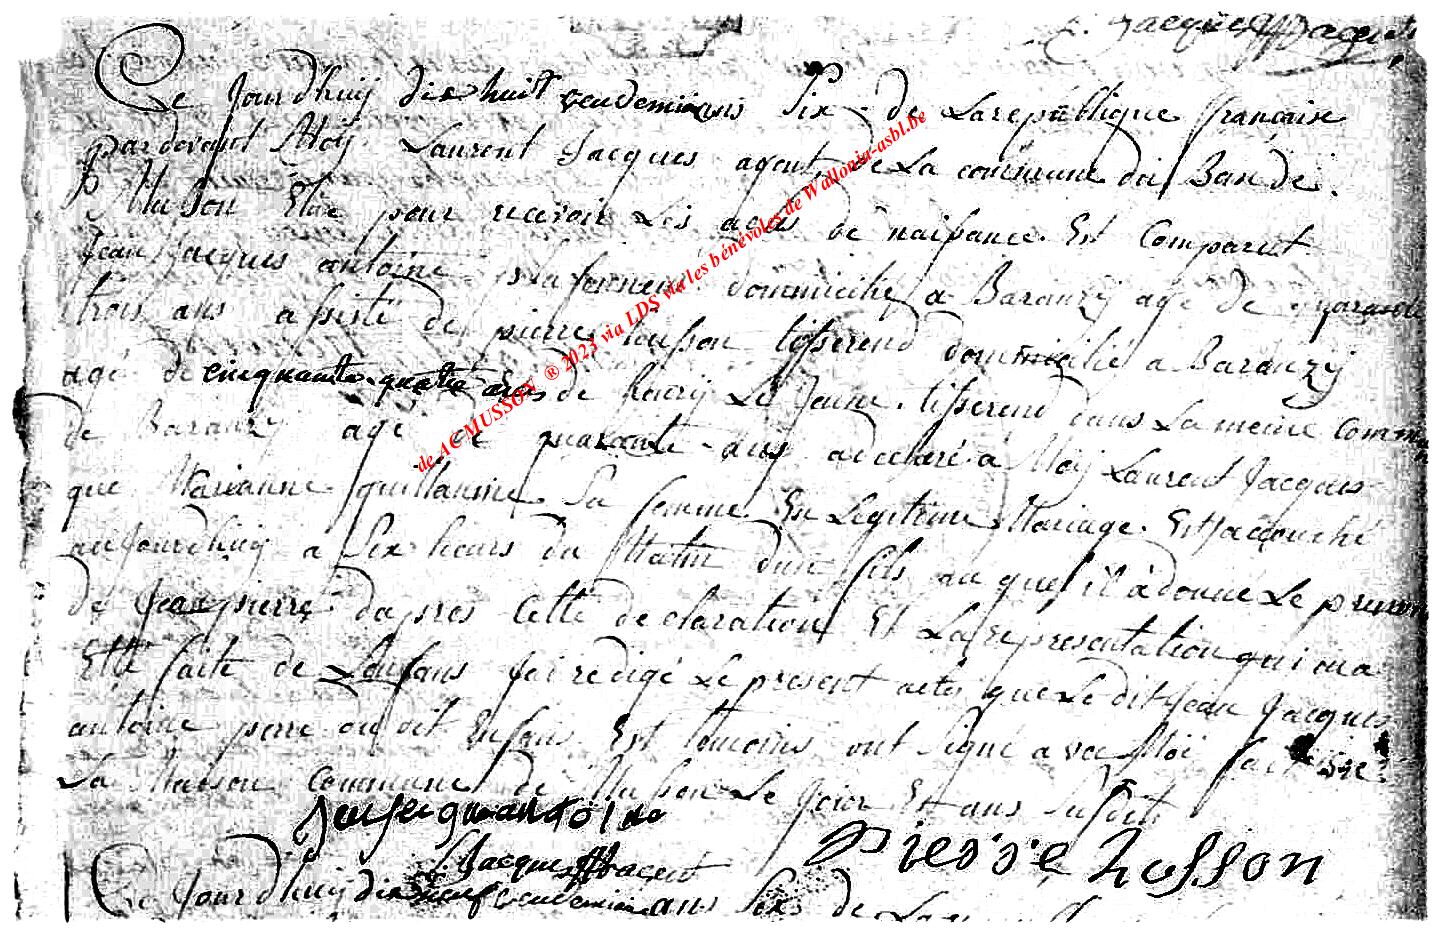 S. Jacques agent
Ce jourdhuij dixhuit vendemiair ans Six de La republique francaise
pardevant Moij Laurent Jacques agent de La commune du Ban de
Musson Elue pour recevoir Les actes de naissance. Est Comparut
Jean Jacques antoine domicilie a Baranzij agé de quarante
trois ans assisté de pierre husson tisserend domicilié a Baranzij
agé de cinquante quatre ans Et de henrij Le Jeune tisserend dans La meme Commune
de Baranzij agé de quarante ans a declaré a Moij Laurent Jacques
que Marianne guillaume Sa femme En Legitime Mariage. Est accouché
aujourdhuij a Six heures du Matin dun fils au quel il à donné Le prenom
de Jean pierre. dapres Cette declaration Et La representation qui ma
Eté faite de Lenfans J'ai redigé Le present actes que Le dit Jean Jacques
antoine perre du dit Enfans Est temoins ont Signé avec Moi fait
La Maison Commune de Musson Le Jour Et ans Susdit
jeanjacque antoine
S. Jacques agent
Pierre husson
Ce Jourdhuij dixneuf vendemiair ans Six de La
de ACMUSSON ® 2023 via LDS via les bénévoles de Wallonia-asbl.be